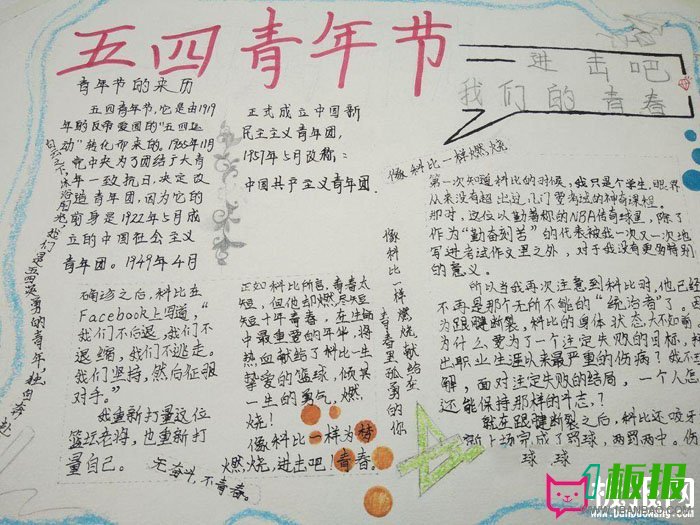 五四青年节
进击吧
我们的青春
青年节的来历
五四青年节,它是由1919
年的反帝爱国的"五四运
动"转化而来的,1935年11月
党中央为了团结广大青
年一致抗日,决定改
造青年团,因为它的
前身是1922年5月成
立的中国社会主义
青年团。1949年4月
正式成立中国新
民主主义青年团,
1957年5月改称:
中国共产主义青年团.
我们是五四英勇的青年,独自奔赴
像科比一样燃烧
第一次知道科比的时候,我只是个学生,眼界
从来没有超出过几门要考试的神奇课程。
那时,这位以勤著称的NBA传奇球星,除了
作为"勤奋刻苦"的代表被我一次又一次地
写进考试作文里之外,对于我没有更多特别
的意义。
所以当我再次注意到科比时,他已经
不再是那个无所不能的"统治者"了。因
为跟腱断裂,科比的身体状态大不如前
为什么要为了一个注定失败的目标,
出职业生涯以来最严重的伤病?我不
解,面对注定失败的结局,一个人怎
还能保持那样的斗志?
就在跟腱断裂之后,科比还咬
上场完成了罚球,两罚两中。伤
球 球
像科比一样燃烧献给在
青春里孤勇的你
确诊之后,科比在
Facebook上写道,"
我们不后退,我们不
退缩,我们不逃走。
我们坚持,然后征服
对手。"
我重新打量这位
篮坛老将,也重新打
量自己。
无奋斗,不青春。
正如科比所言,青春太
短,但他却燃尽短
短十年青春,在生命
中最重要的年华,将
热血献给了科比一生
挚爱的篮球,倾其
一生的勇气,燃
烧!
像科比一样为梦
燃烧,进击吧!青春。
1板报
WWW.1BANBAO.COM